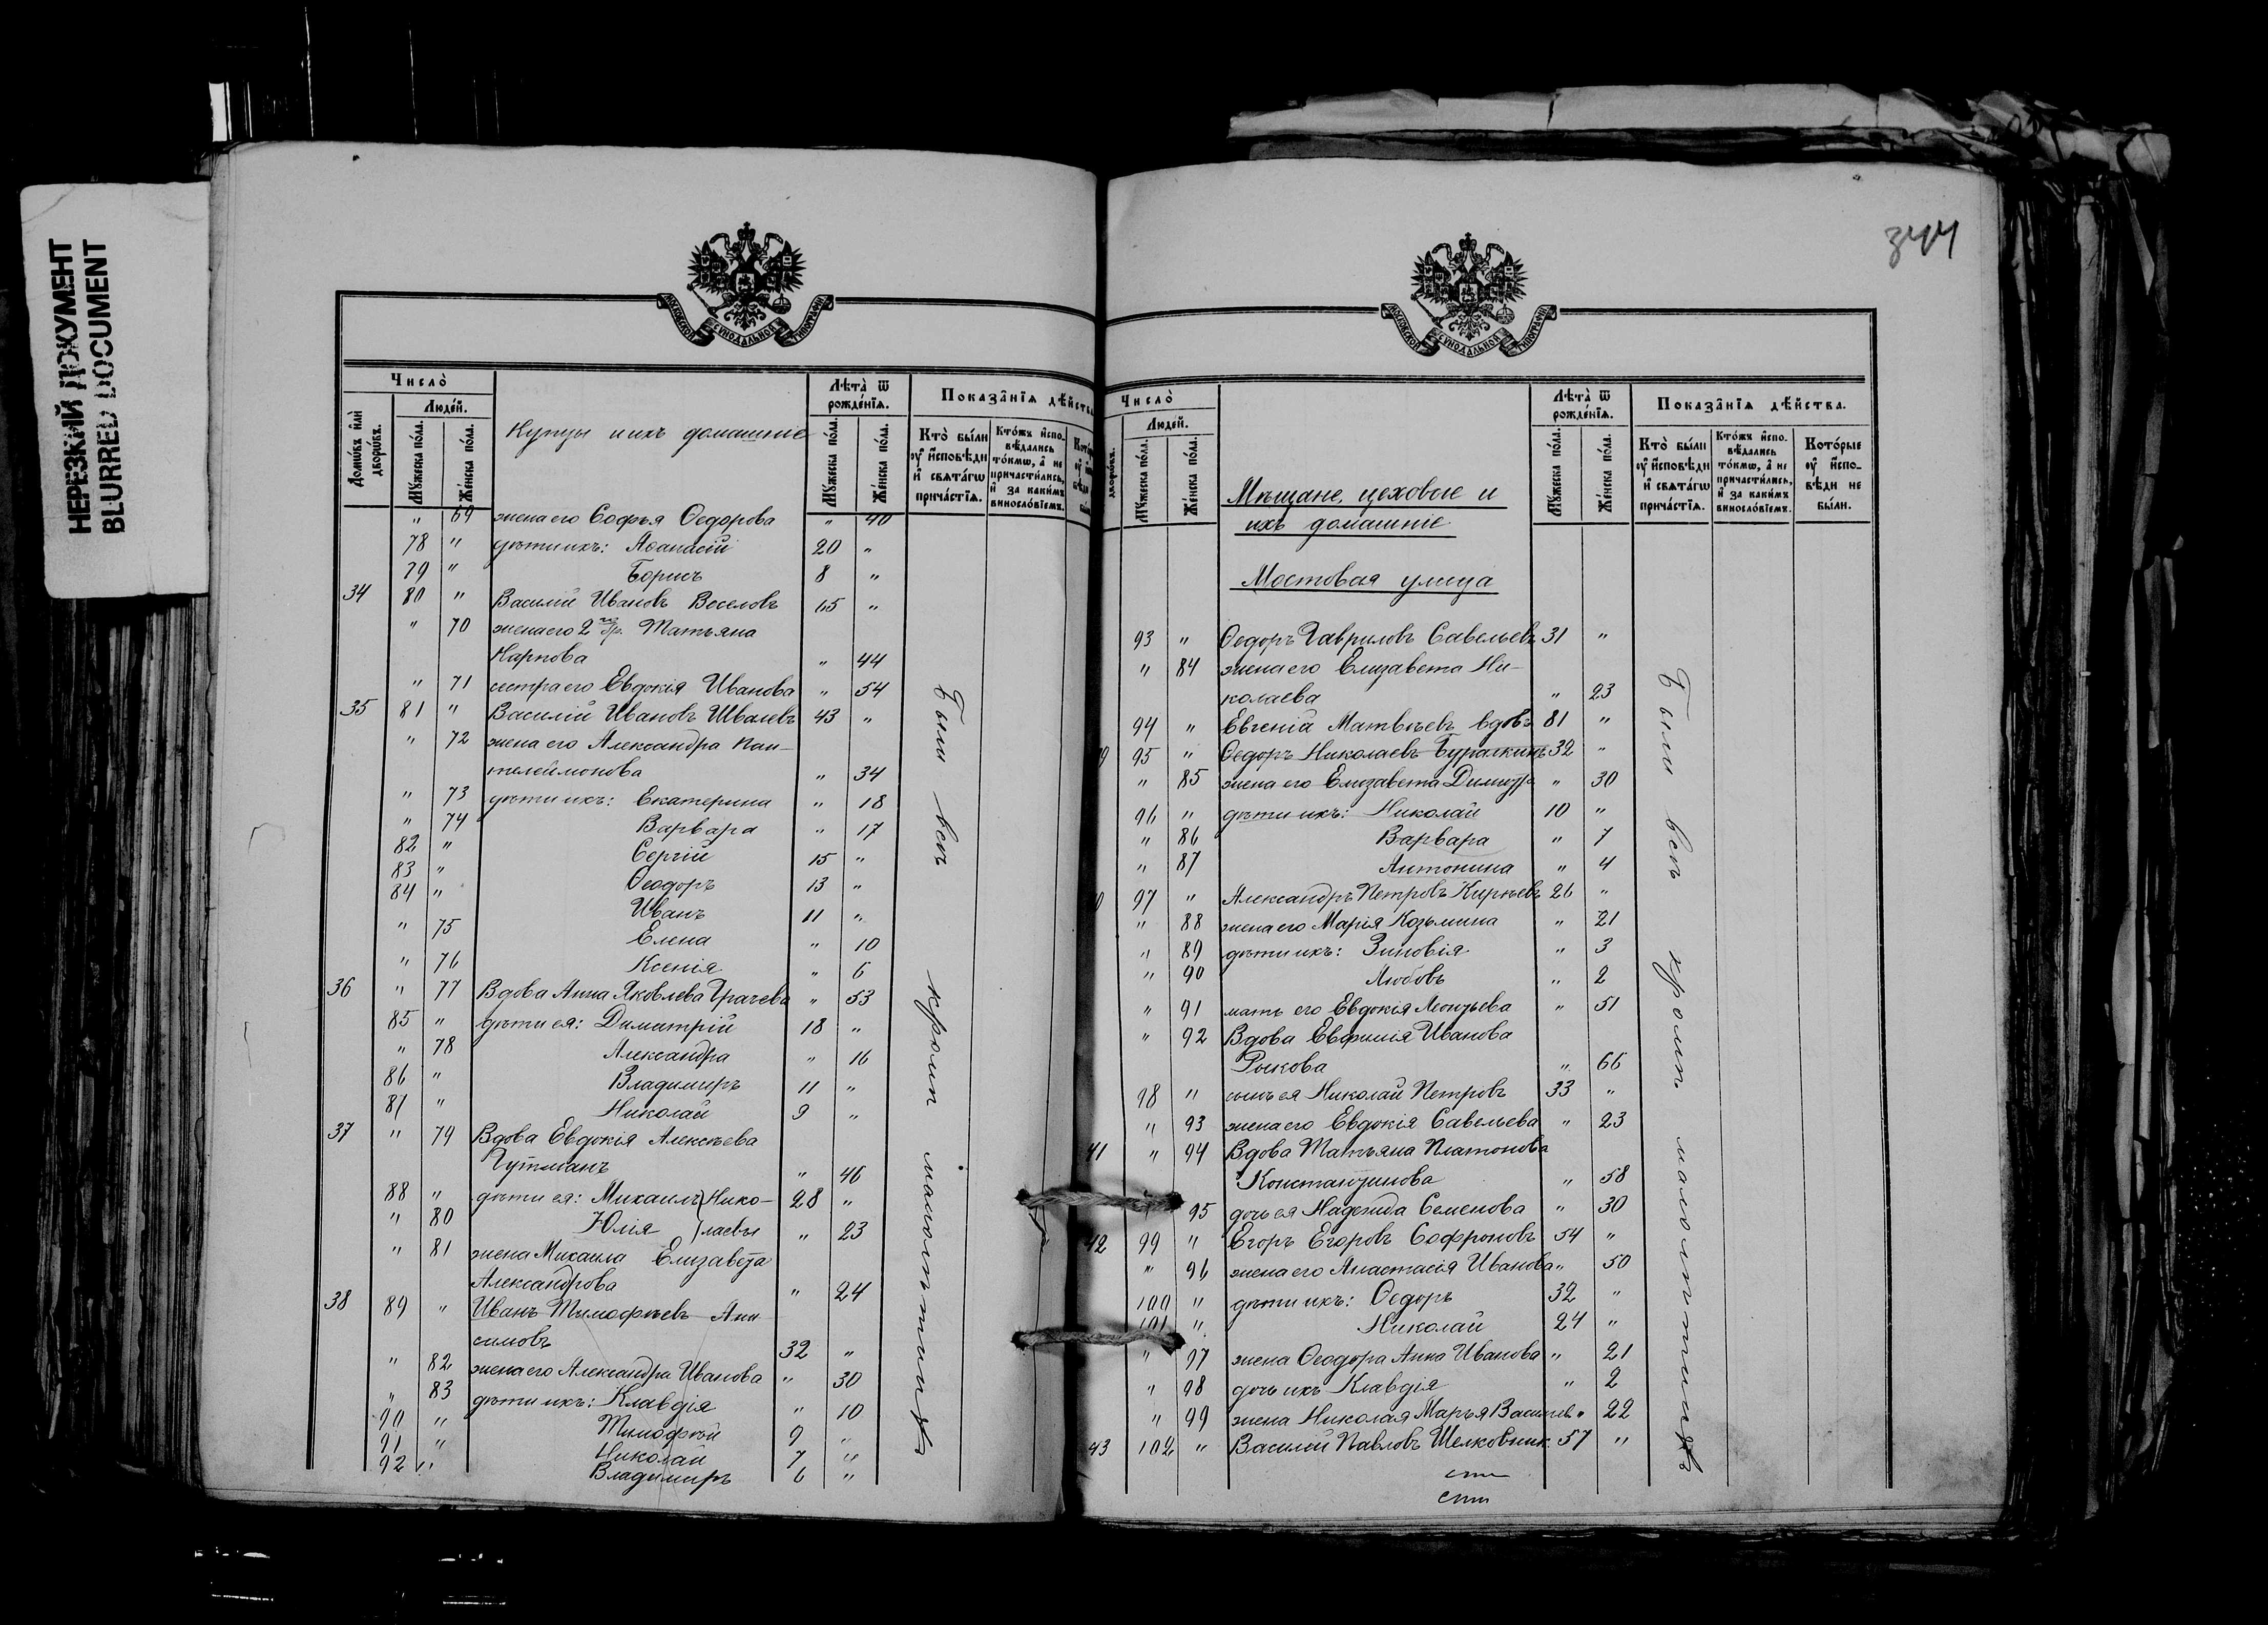 НЕРЕЗКИЙ ДОКУМЕНТ
BLURRED DOCUMENT
МОСКОВСКОЙ СУНОДАЛЬНОЙ ТИПОГРАФІИ
Число̀
Людéй.
Домѡ́въ и҆лѝ дворѡ́въ.
Мꙋ́жеска по́ла.
Же́нска по́ла.
Купцы и ихъ домашніе
Лѣ́та ѿ рожде́нїѧ.
Мꙋ́жеска по́ла.
Же́нска по́ла.
Показа̂нїѧ дѣ́йства
Кто̀ бы́ли ᲂу҆ и҆сповѣ́ди и҆ свѧта́гѡ прича́стїѧ.
Кто́жъ и҆сповѣ́дались то́кмѡ, а҆ не причасти́лись, и҆ за каки́мъ винослові́емъ.
" 69 жена его Софья Ѳедорова " 40
78 " дѣти ихъ: Аѳанасій 20 "
79 " Борисъ 8 "
34 80 " Василій Ивановъ Веселовъ 65 "
" 70 жена его 2 бр. Татьяна
Карпова " 44
" 71 сестра его Евдокія Иванова " 54
35 81 " Василій Ивановъ Швалевъ 43 "
" 72 жена его Александра Пан-
телеймонова " 34
" 73 дѣти ихъ: Екатерина " 18
" 74 Варвара " 17
82 " Сергій 15 "
83 " Ѳеодоръ 13 "
84 " Иванъ 11 "
" 75 Елена " 10
" 76 Ксенія " 6
36 " 77 Вдова Анна Яковлева Грачева " 53
85 " дѣти ея: Димитрій 18 "
" 78 Александра " 16
86 " Владимиръ 11 "
87 " Николай 9 "
37 " 79 Вдова Евдокія Алексѣева
Гутманъ " 46
88 " дѣти ея: Михаилъ } Нико- 28 "
" 80 Юлія } лаевы " 23
" 81 жена Михаила Елизавета
Александрова " 24
38 89 " Иванъ Тимофѣевъ Ани
симовъ 32 "
" 82 жена его Александра Иванова " 30
" 83 дѣти ихъ: Клавдія " 10
90 " Тимофѣй 9 "
91 " Николай 7 "
92 " Владимиръ 6 "
Были всѣ кромѣ малолѣтнихъ
344
МОСКОВСКОЙ СУНОДАЛЬНОЙ ТИПОГРАФІИ
Число̀
Людéй.
дворѡ́въ.
Мꙋ́жеска по́ла.
Же́нска по́ла.
Мѣщане, цеховые и
ихъ домашніе
Мостовая улица
Лѣ́та ѿ рожде́нїѧ.
Мꙋ́жеска по́ла.
Же́нска по́ла.
Показа̂нїѧ дѣ́йства.
Кто̀ бы́ли ᲂу҆ и҆сповѣ́ди и҆ свѧта́гѡ прича́стїѧ.
Кто́жъ и҆сповѣ́дались то́кмѡ, а҆ не причасти́лись, и҆ за каки́мъ винослові́емъ.
Кото́рые ᲂу҆ и҆сповѣ́ди не бы́ли.
93 " Ѳедоръ Гавриловъ Савельевъ 31 "
" 84 жена его Елизавета Ни-
колаева " 23
94 " Евгеній Матвѣевъ вдовъ 81 "
9 95 " Ѳедоръ Николаевъ Буралкинъ 32 "
" 85 жена его Елизавета Димитр. " 30
96 " дѣти ихъ: Николай 10 "
" 86 Варвара " 7
" 87 Антонина " 4
0 97 " Александръ Петровъ Кирѣевъ 26 "
" 88 жена его Марія Козьмина " 21
" 89 дѣти ихъ: Зиновія " 3
" 90 Любовь " 2
" 91 мать его Евдокія Леонтьева " 51
" 92 Вдова Евфимія Иванова
Рыкова " 66
98 " сынъ ея Николай Петровъ 33 "
" 93 жена его Евдокія Савельева " 23
41 " 94 Вдова Татьяна Платонова
Константинова " 58
95 дочь ея Надежда Семенова " 30
42 99 " Егоръ Егоровъ Софроновъ 54 "
" 96 жена его Анастасія Иванова " 50
100 " дѣти ихъ: Ѳедоръ 32 "
101 " Николай 24 "
" 97 жена Ѳеодора Анна Иванова " 21
" 98 дочь ихъ Клавдія " 2
" 99 жена Николая Марья Васильев. " 22
43 102 " Василій Павловъ Шелковник. 57 "
Были всѣ кромѣ малолѣтнихъ